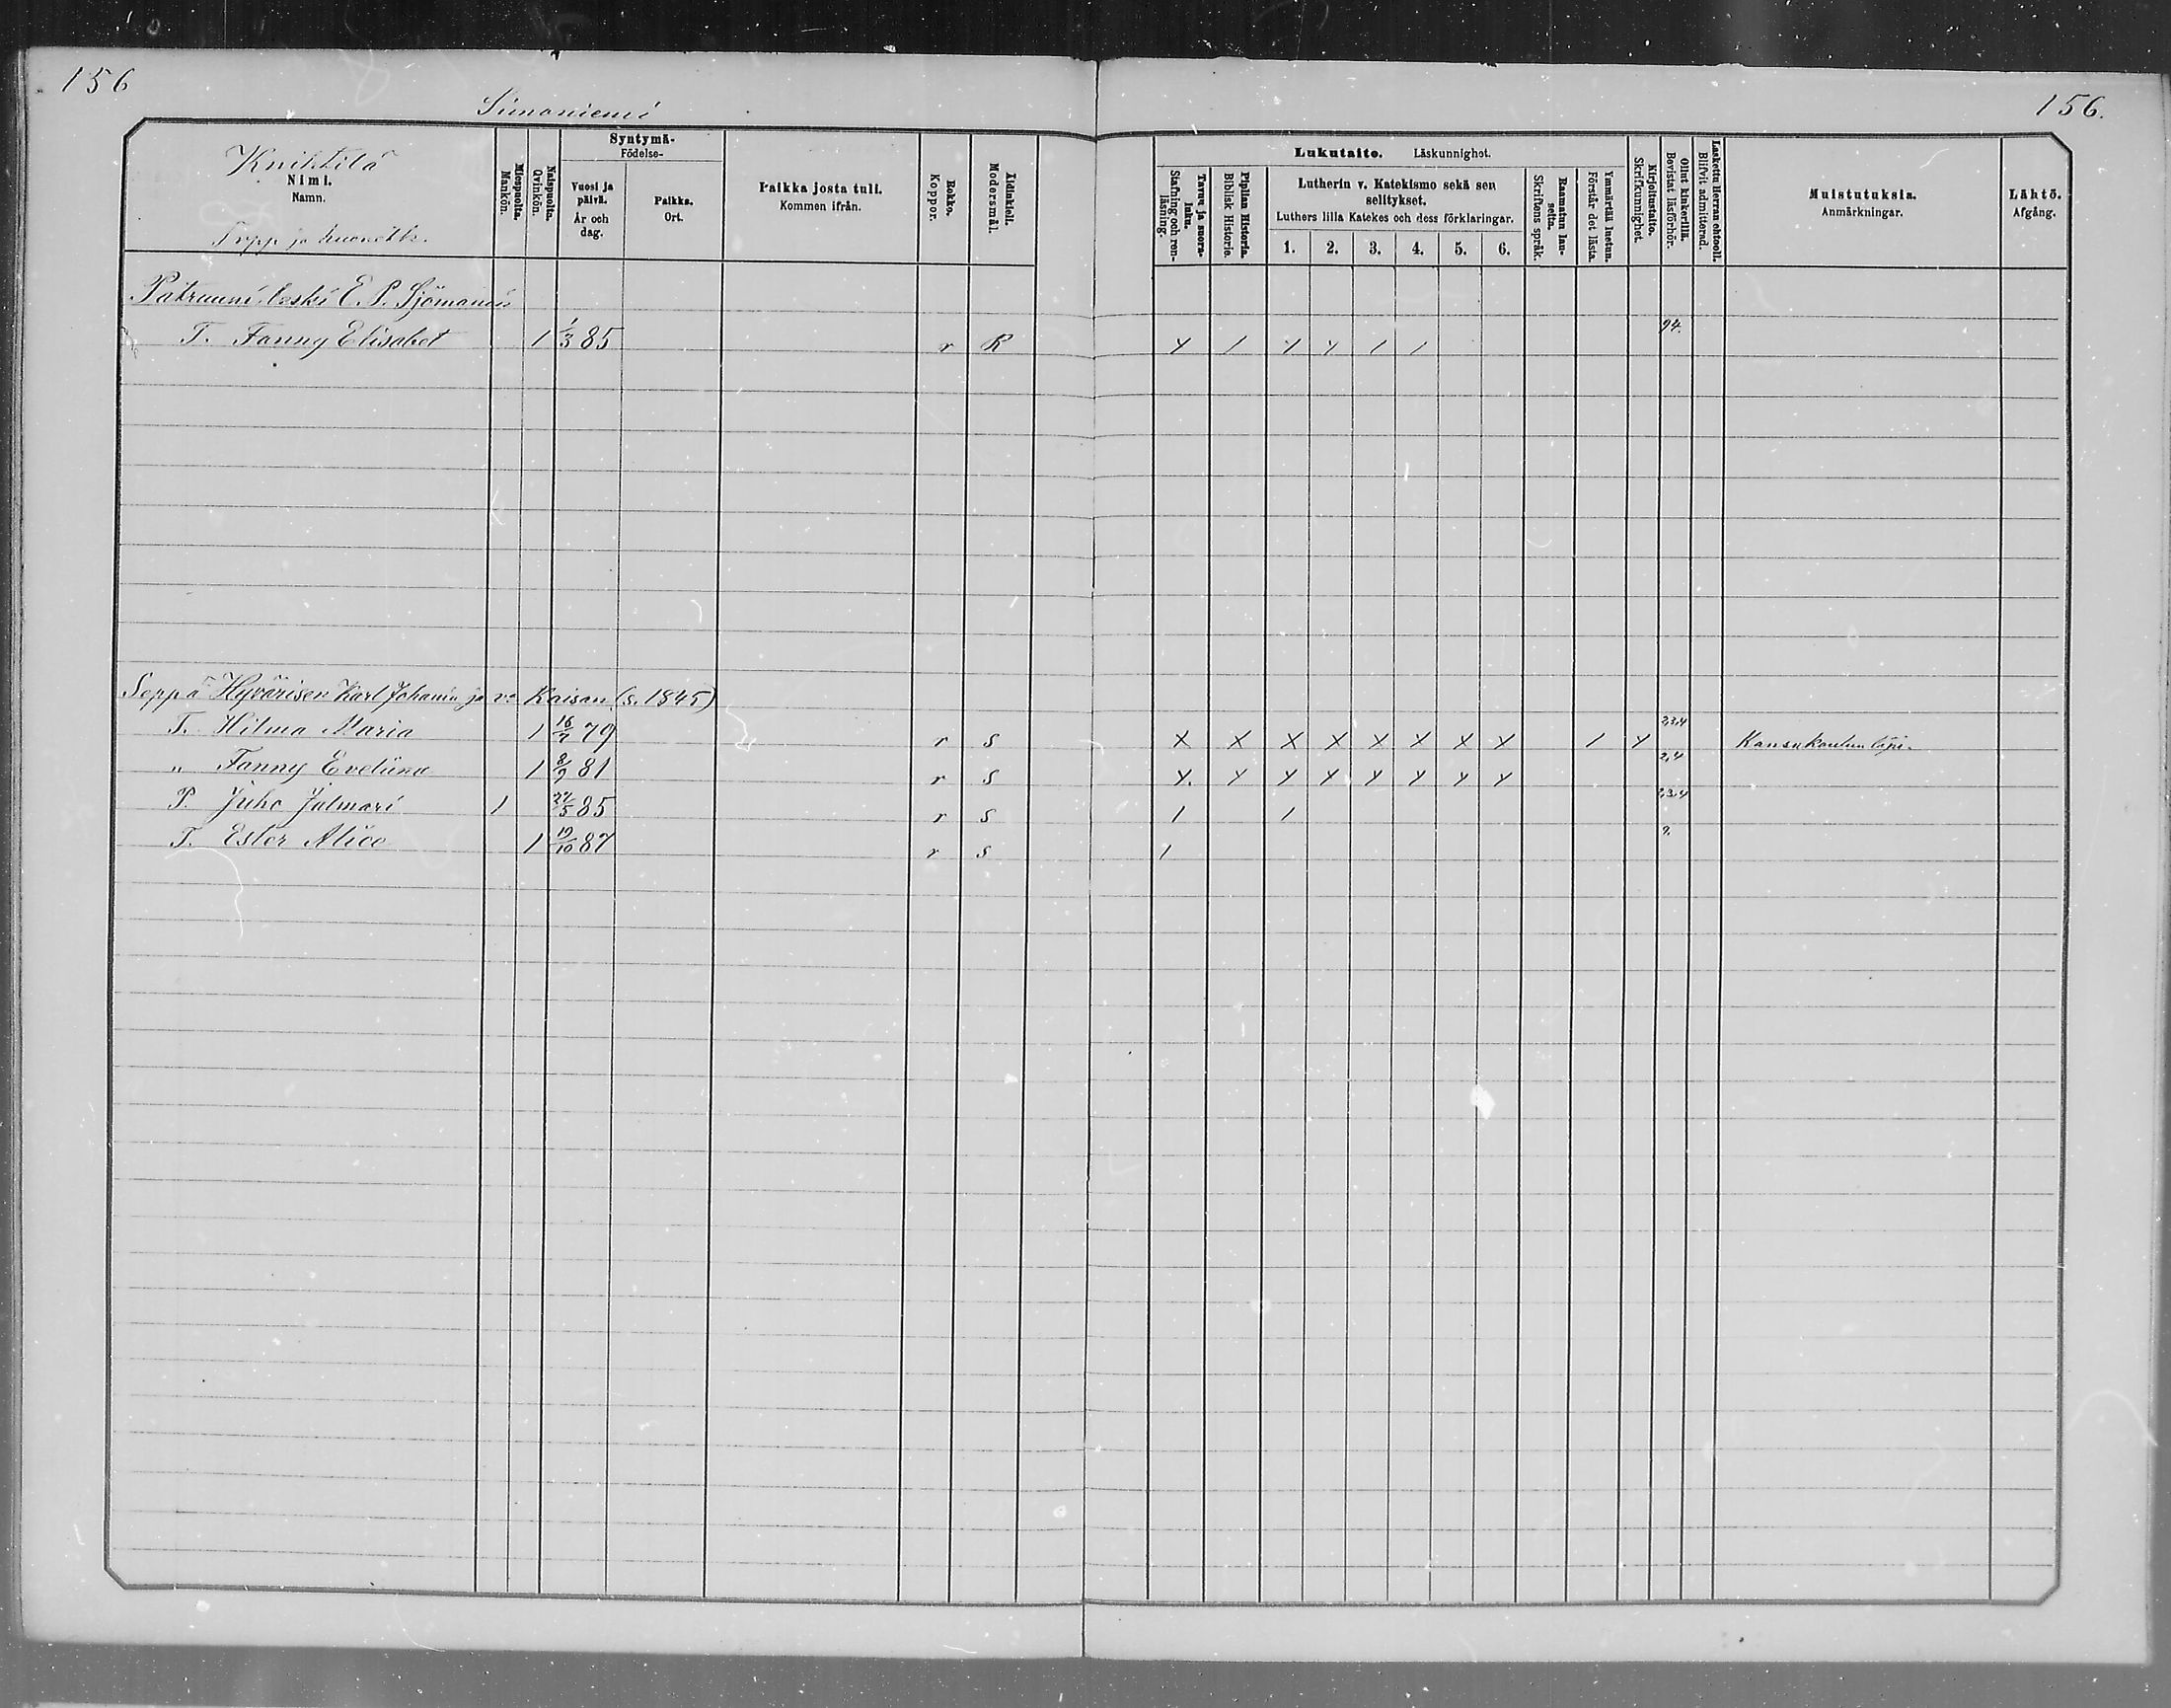 156
156.
Simaniemi
Knihtilä
Nimi.
Namn.
Torpp ja huonetk.
Miespuolia.
Mankön.
Naispuolia.
Qvinkön.
Syntymä-
Födelse-
Vuosi ja päivä.
År och dag.
Paikka.
Ort.
Paikka josta tuli.
Kommen ifrån.
Rokko.
Koppor.
Äidinkieli.
Modersmål.
Lukutaito. Läskunnighet.
Tavuu ja suora-luku.
Stafning och ren-läsning.
Piplian Historia.
Biblisk Historie.
Lutherin v. Katekismo sekä sen selitykset.
Luthers lilla Katekes och dess förklaringar.
1. 2. 3. 4. 5. 6.
Raamatun lau-seita.
Skriftens språk.
Ymmärtää luetun.
Förstår det lästa.
Kirjoitustaito.
Skrifkunnighet.
Ollut kinkerillä.
Bevistat läsförhör.
Laskettu Herran ehtooll.
Blifvit admitterad.
Muistutuksia.
Anmärkningar.
Lähtö.
Afgång.
Patruuni leski E. P. Sjömanin
T. Fanny Elisabet 1 1/3 85 r R Y / Y Y / / 94.
Seppä Hyvärisen Karl Johanin ja v:o Kaisan (s. 1845)
T. Hilma Maria 1 16/7 79 r S X X X X X X X X 1 Y 2,3,4 Kansakoulun läpi.
" Fanny Eveliina 1 8/9 81 r S Y. Y Y Y Y Y Y Y 2,4
P. Juho Jalmari 1 27/5 85 r S 1 1 2,3,4
T. Ester Alice 1 19/10 87 r S 1